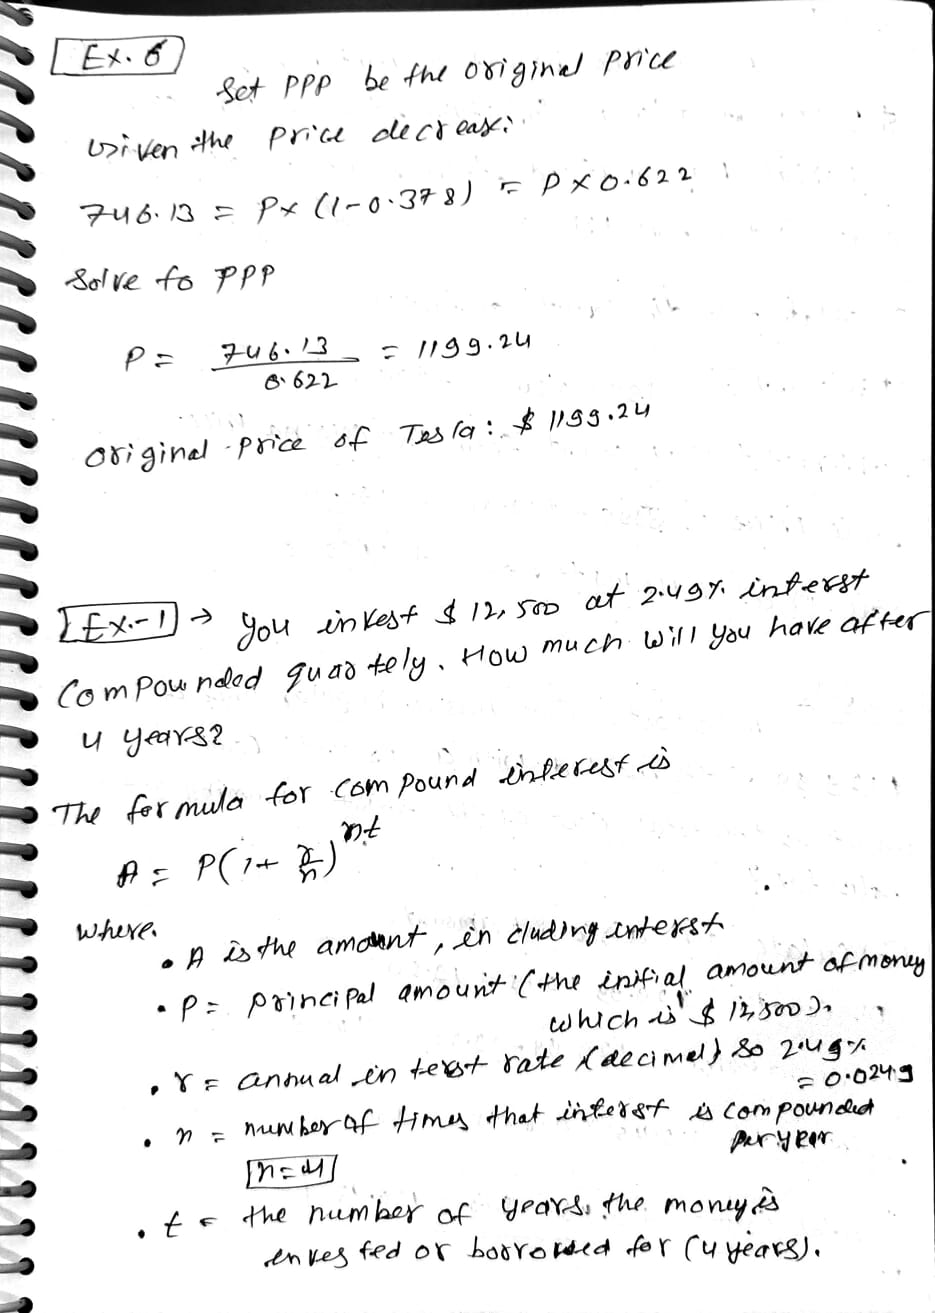 Ex. 6
Set PPP be the original price
Given the price decrease:
746.13 = P× (1-0.378) = P×0.622
Solve to PPP
P = 746.13 / 0.622 = 1199.24
original price of Tesla: $ 1199.24
Ex.-1 → you invest $ 12,500 at 2.49% interst
Compounded quartely. How much will you have after
4 years?
The formula for compound interest is
A = P(1+ r/n)^nt
where.
• A is the amount, including interst
• P = principal amount (the initial amount of money
which is $ 12,500).
• r = annual interst rate (decimel) so 2.49%
= 0.0249
• n = number of times that interst is compounded
per year
n=4
• t = the number of years. the money is
invested or borrowed for (4 years).